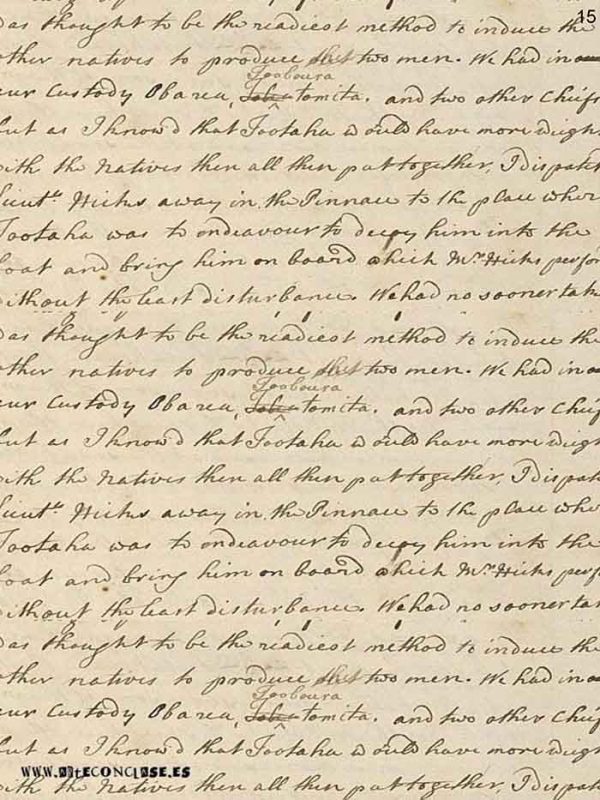 15
as thought to be the readiest method to induce the
other natives to produce the two men. We had in
Tooboura
our Custody Obarea, Toba tomita. and two other Chiefs
but as I know'd that Tootaha would have more weigh
with the Natives then all then put together, I dispatc
Lieut.t Hicks away in the Pinnace to the place wher
Tootaha was to endeavour to decoy him into the
boat and bring him on board which Mr. Hicks perfor
without the least disturbance. We had no sooner take
as thought to be the readiest method to induce the
other natives to produce the two men. We had in
Tooboura
our Custody Obarea, Toba tomita. and two other Chief
but as I know'd that Tootaha would have more weigh
with the Natives then all then put together, I dispatc
Lieut.t Hicks away in the Pinnace to the place wher
Tootaha was to endeavour to decoy him into the
boat and bring him on board which Mr. Hicks perfo
without the least disturbance. We had no sooner tak
as thought to be the readiest method to induce the
other natives to produce the two men. We had in
Tooboura
our Custody Obarea, Toba tomita. and two other Chief
but as I know'd that Tootaha would have more weigh
www.arteconclose.es
with the Natives then all then put together, I dispatc